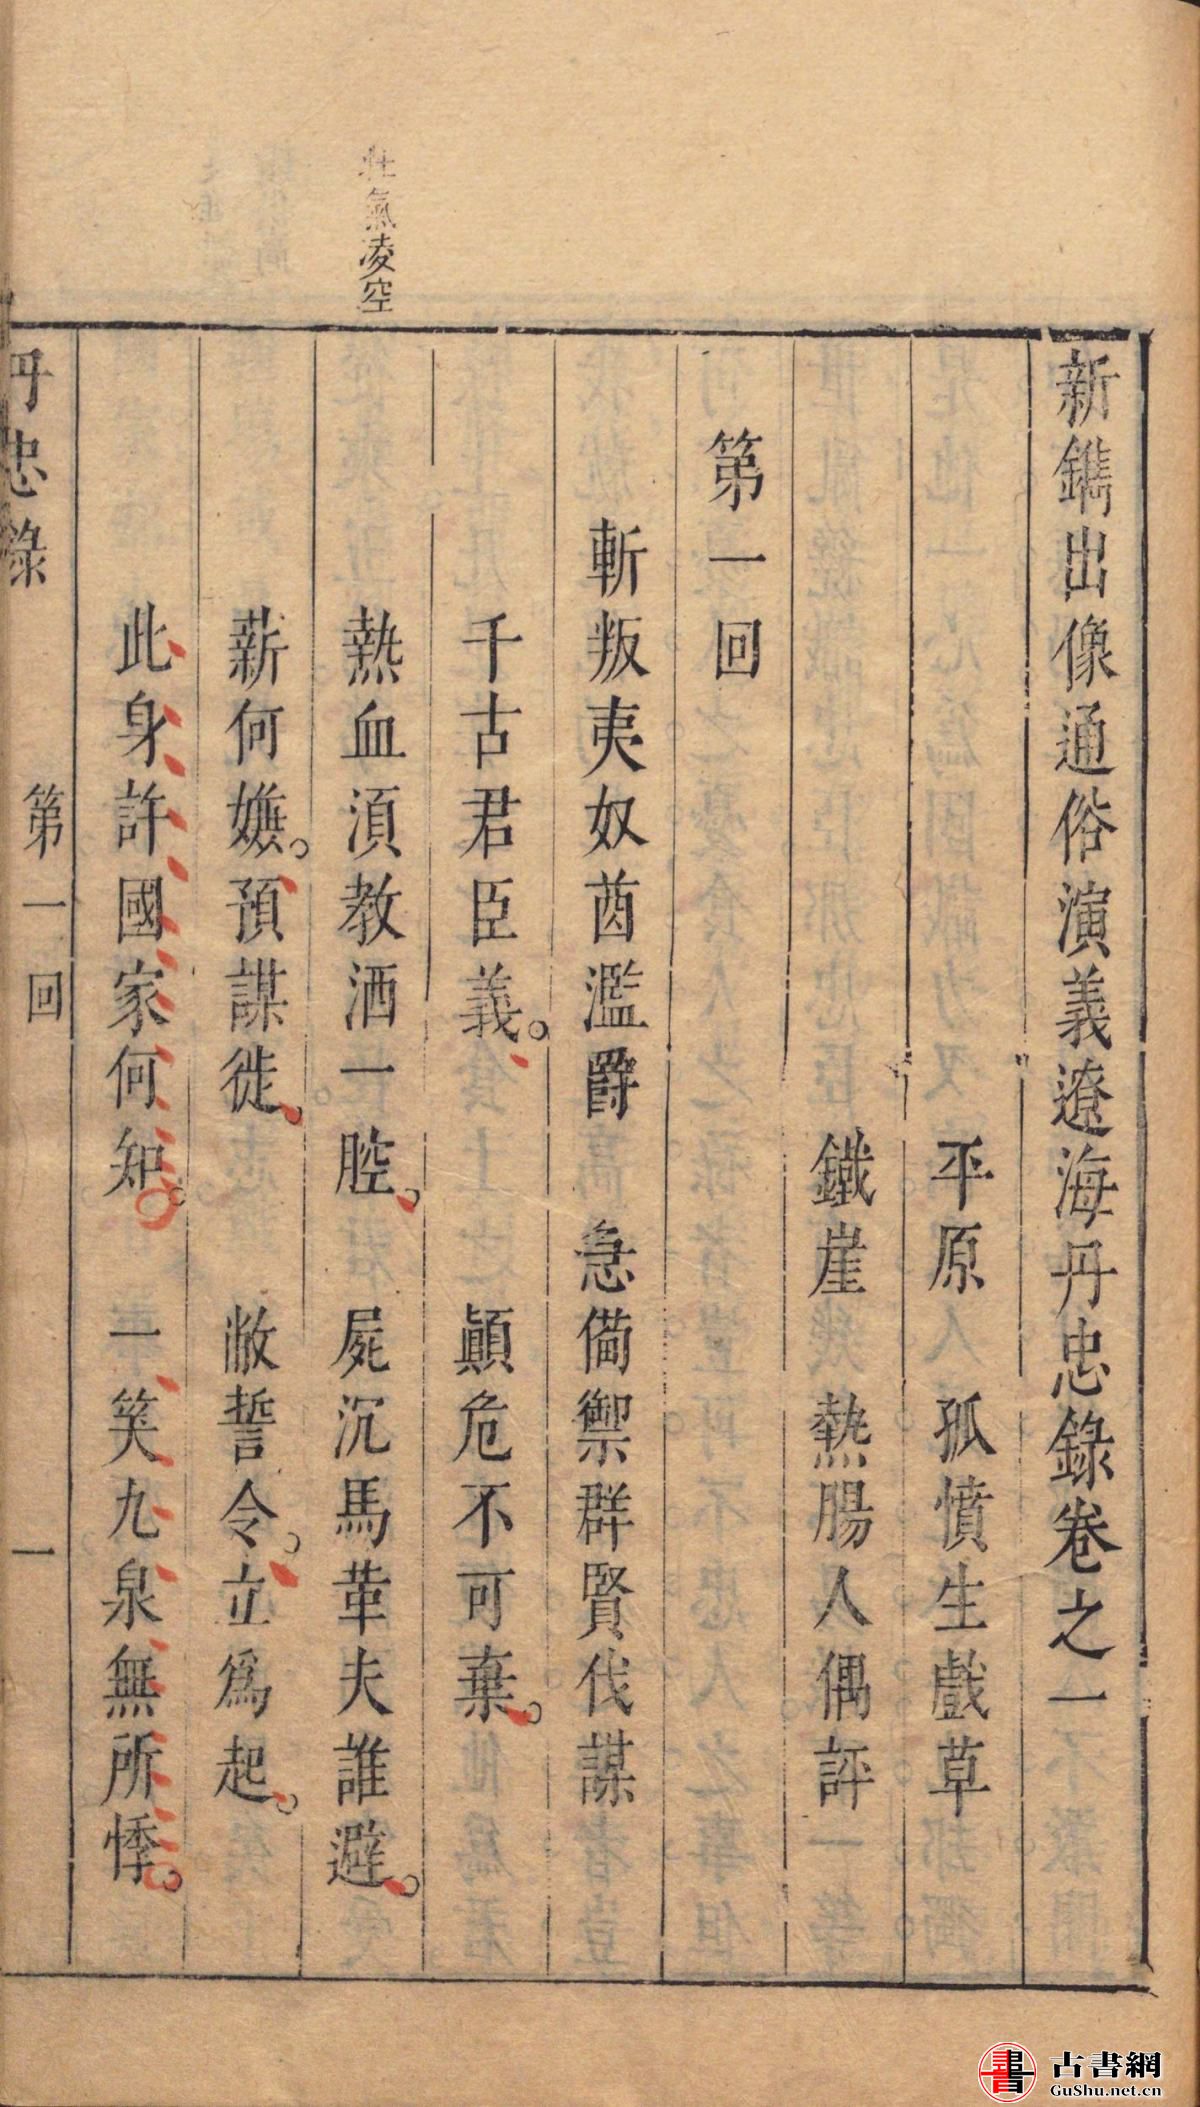 新鐫出像通俗演義遼海丹忠錄卷之一
平原 孤憤生戲草
鐵崖 熱腸人偶評
第一回
斬叛夷奴酋濫爵 急備禦群賢伐謀
千古君臣義。 顛危不可棄。
壯氣凌空
熱血須教洒一腔。 屍沉馬革夫誰避。
薪何嫌。預謀徙。 敝誓令。立爲起。
此身許國家何知。 一笑九泉無所悸。
丹忠錄 第一回 一
古書網
GuShu.net.cn